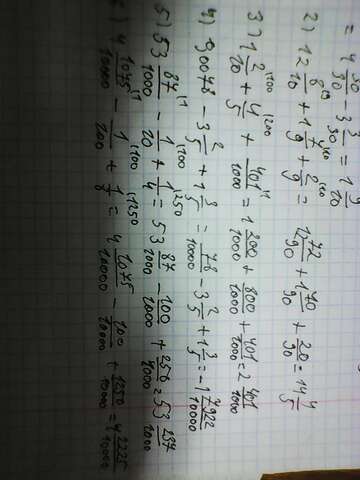 = 4 10/30 - 3 3/30 = 1 9/10
2) 12 8/10 + 1 7/9 + 2/9 = 12 72/90 + 1 70/90 + 20/90 = 14 4/5
3) 1 2/10 + 4/5 + 401/1000 = 1 200/1000 + 800/1000 + 401/1000 = 2 401/1000
4) 0,0078 - 3 2/5 + 1 3/5 = 78/10000 - 3 2/5 + 1 3/5 = -1 7922/10000
5) 53 87/1000 - 1/10 + 1/4 = 53 87/1000 - 100/1000 + 250/1000 = 53 237/1000
6) 4 1075/10000 - 1/100 + 1/8 = 4 1075/10000 - 100/10000 + 1250/10000 = 4 2225/10000